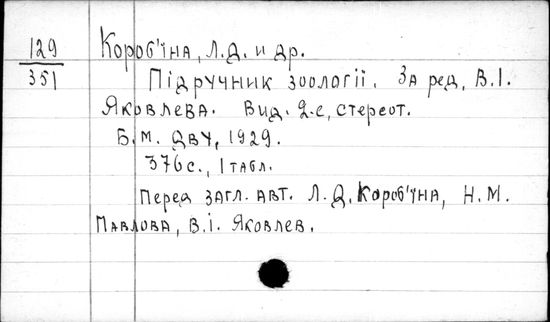 129
351
Короб'їна, Л.Д. и др.
Підручник зоології. За ред. В.І.
Яковлева. Вид. 2-е, стереот.
Б.М. ДВУ, 1929.
376с., 1 табл.
Перед загл. авт. Л.Д. Короб'їна, Н.М.
Павлова, В.І. Яковлев.